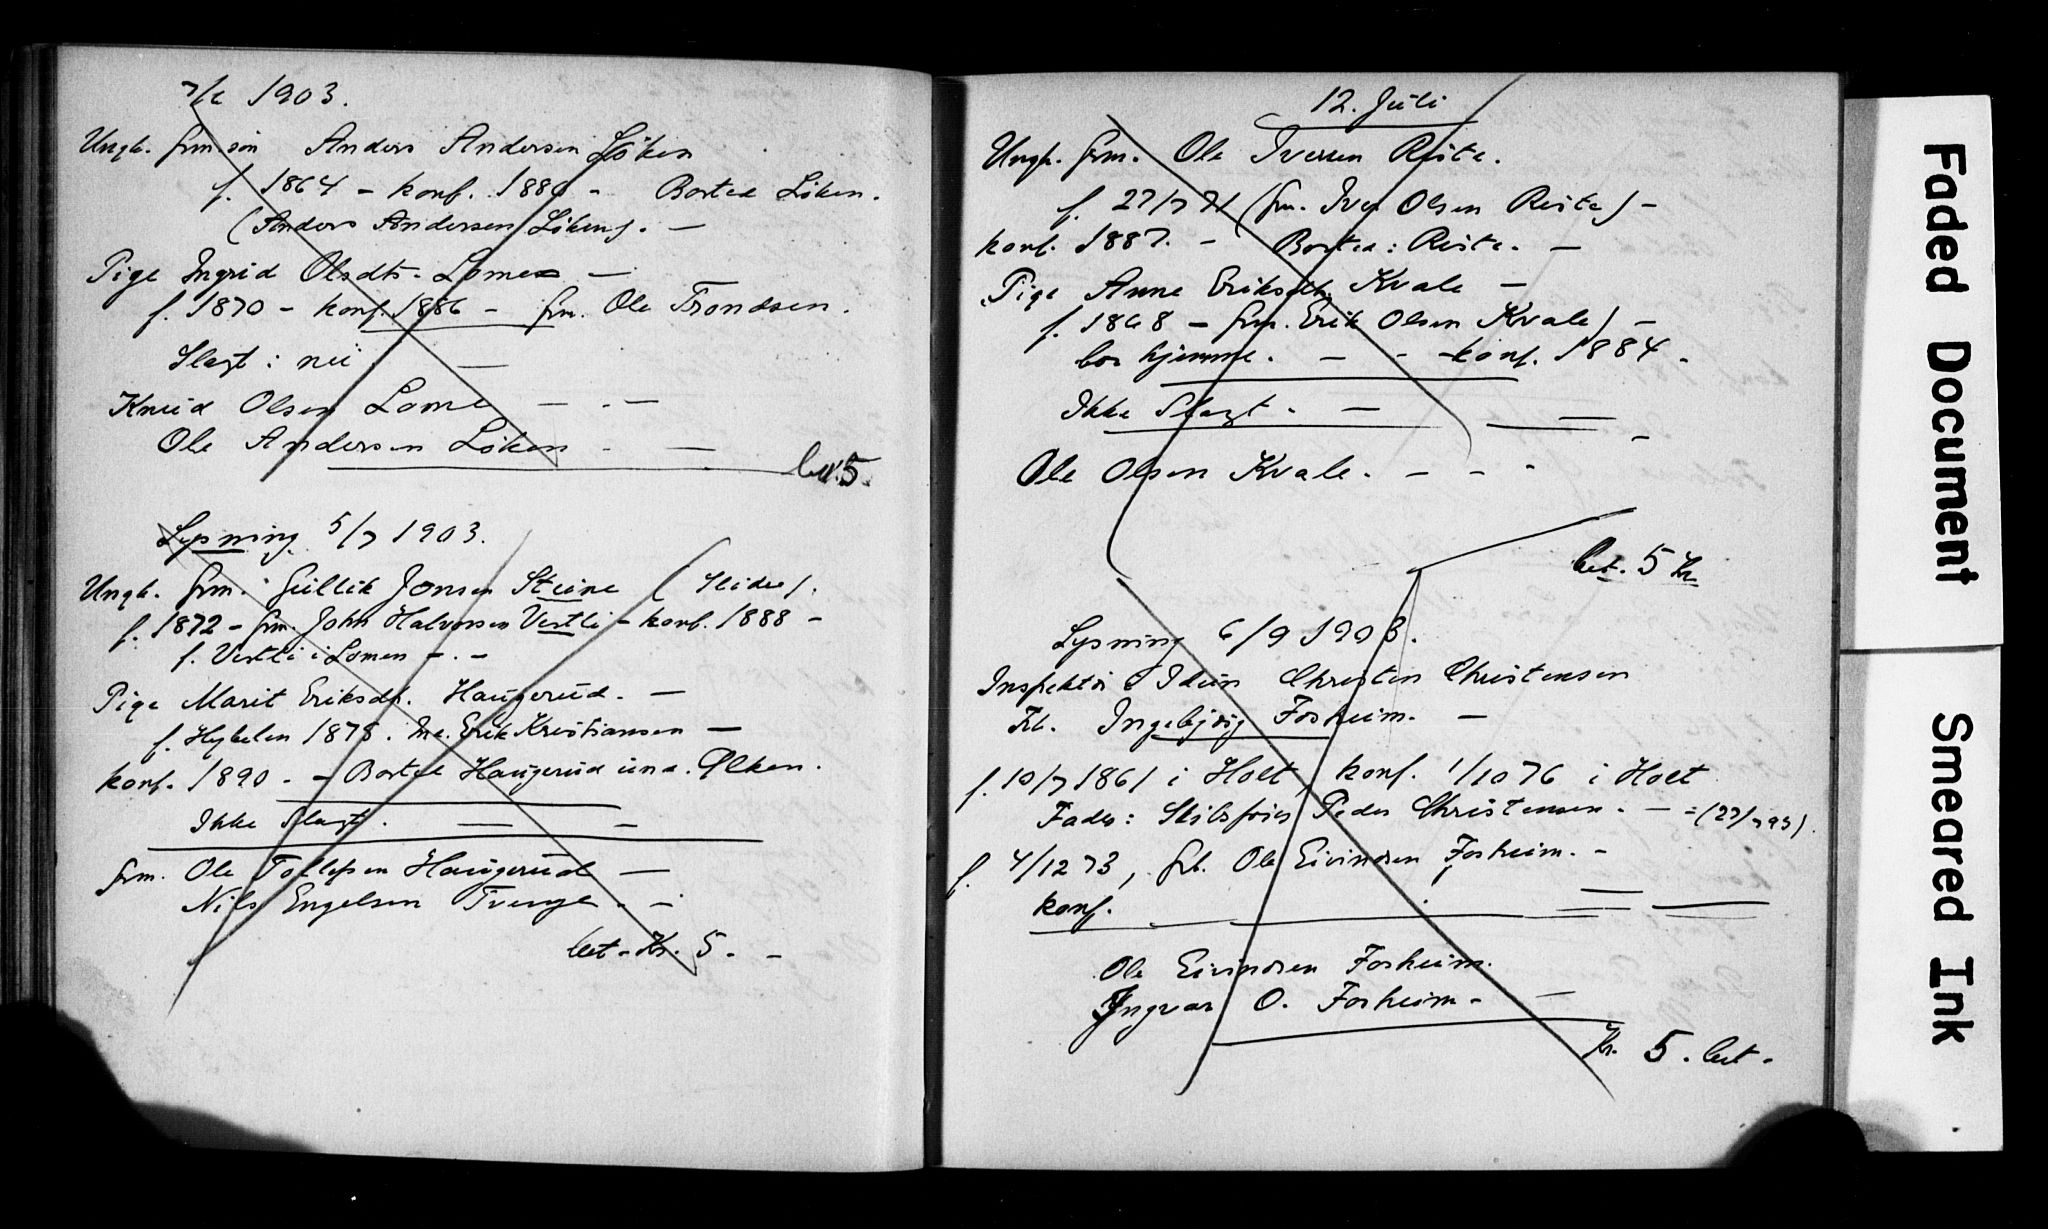 7/6 1903.
Ungk. Grm.sön Anders Andersen Löken
f. 1864 - konf. 1880 - Bosted Löken.
(Anders Andersen Löken). -
Pige Ingrid Olsdtr. Lome -
f. 1870 - konf. 1886 - Grm. Ole Trondsen.
Slægt: nei. -
Knud Olsen Lome - . -
Ole Andersen Löken . -
bet. 5.
Lysning 5/7 1903.
Ungk. Grm. Gullik Jonsen Steine (Slidre).
f. 1872 - Grm. John Halvorsen Vestli - konf. 1888 -
f. Vestli i Lomen - . -
Pige Marit Eriksdt. Haugerud. -
f. Hybelen 1875. Erik Kristiansen -
konf. 1890. - Bosted Haugerud und. Ølken.
Ikke Slægt. - -
Grm. Ole Tollefsen Haugerud -
Nils Engelsen Tvenge . -
bet. Kr. 5. -
12. Juli
Ungk. Grm. Ole Iversen Reste.
f. 27/7 71 (Grm. Iver Olsen Reste) -
konf. 1887. - Bosted: Reste. -
Pige Anne Eriksdtr. Kvale -
f. 1868 - Grm. Erik Olsen Kvale) -
bor hjemme. - - konf. 1884.
Ikke Slægt. - -
Ole Olsen Kvale. - - -
bet. 5 Kr
Lysning 6/9 1903.
Inspektör Idun Christen Christensen
Frk. Ingebjörg Fosheim. -
f. 10/7 1861 i Holt, konf. 1/10 76 i Holt
Fader: Skibsfører Peder Christensen. - = (27/7 93).
f. 4/12 73, Grb. Ole Eivindsen Fosheim. -
konf.
Ole Eivindsen Fosheim.
Ingvar O. Fosheim. -
Kr. 5. bet.
Faded Document
Smeared Ink